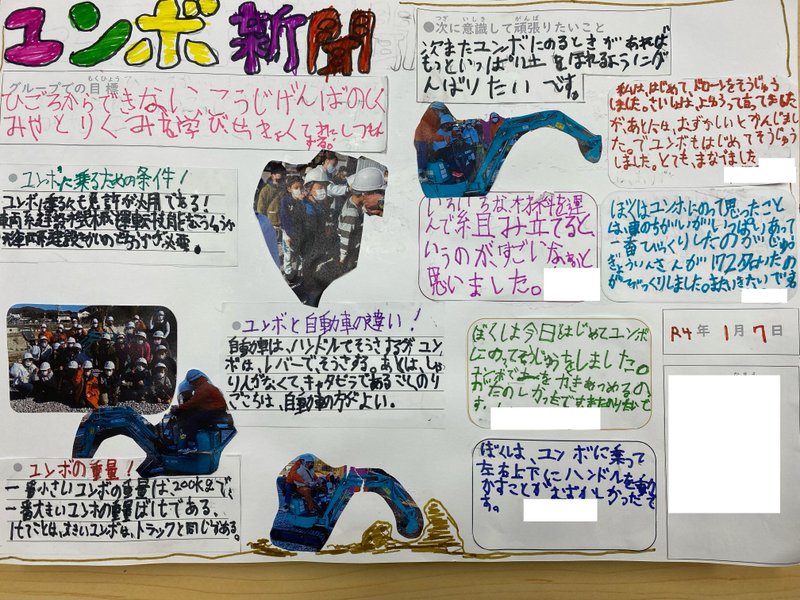 ユンボ新聞
グループでの目標
もくひょう
ひごろからできないこうじげんばのしく
みやとりくみを学びせっきょくてきにしつもん
する。
●次に意識して頑張りたいこと
つぎ いしき がんば
次またユンボにのるときがあれば
もっといっぱい土をほれるようにが
んばりたいです。
私は、はじめて、ドローンをそうじゅう
しました。さいしょは、よゆうって言ってました
が、あとからは、むずかしいとかんじまし
た。でユンボもはじめてそうじゅう
しました。とても、まなべました
●ユンボに乗るための条件!
ユンボに乗るにも免許が必用である!
車両系建設機械運転技能
が必要。
いろいろな材料を運
んで組み立てると
いうのが、すごいなぁと
思いました。
ぼくはユンボにのって思ったこと
は、車のちがいがいっぱいあって
一番びっくりしたのが
ぎょういんさんが172名いたの
がびっくりしました。またいきたいです
●ユンボと自動車の違い!
自動車は、ハンドルでそうさするがユン
ボは、レバーで、そうさする。あとは、しゃ
りんがなくてキャタピラであるさいごのり
ごこちは、自動車の方がよい。
ぼくしは今日はじめてユンボ
にのってそうじゅうをしました。
たのしかったです。またのりたいです
R4年 1月 7日
●ユンボの重量!
一番小さいユンボの重量は、200kgで、
一番大きいユンボの重量は1tである、
1tてことは、大きいユンボは、トラックと同じである。
ぼくは、ユンボに乗って
左右上下にハンドルを動
かすことがむずかしかったで
す。